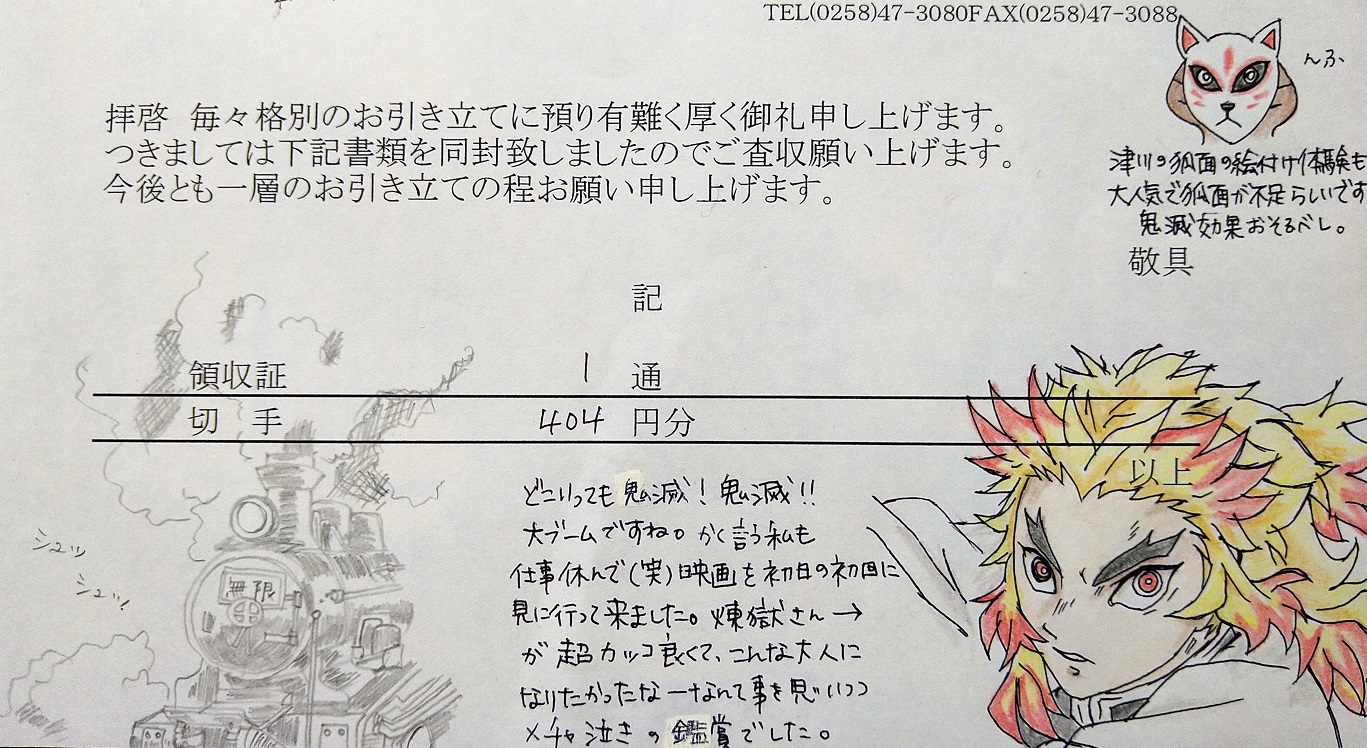 TEL(0258)47-3080FAX(0258)47-3088
んふ
拝啓 毎々格別のお引き立てに預り有難く厚く御礼申し上げます。
つきましては下記書類を同封致しましたのでご査収願い上げます。
今後とも一層のお引き立ての程お願い申し上げます。
津川の狐面の絵付け体験も
大人気で狐面が不足らしいです
鬼滅効果おそるべし。
敬具
記
領収証 1 通
切 手 404 円分
以上
どこいっても鬼滅!鬼滅!!
大ブームですね。かく言う私も
仕事休んで(笑)映画を初日の初回に
見に行って来ました。煉獄さん→
が超カッコ良くて、こんな大人に
なりたかったなーなんて事を思いつつ
メチャ泣きの鑑賞でした。
シュッ
シュッ
無限